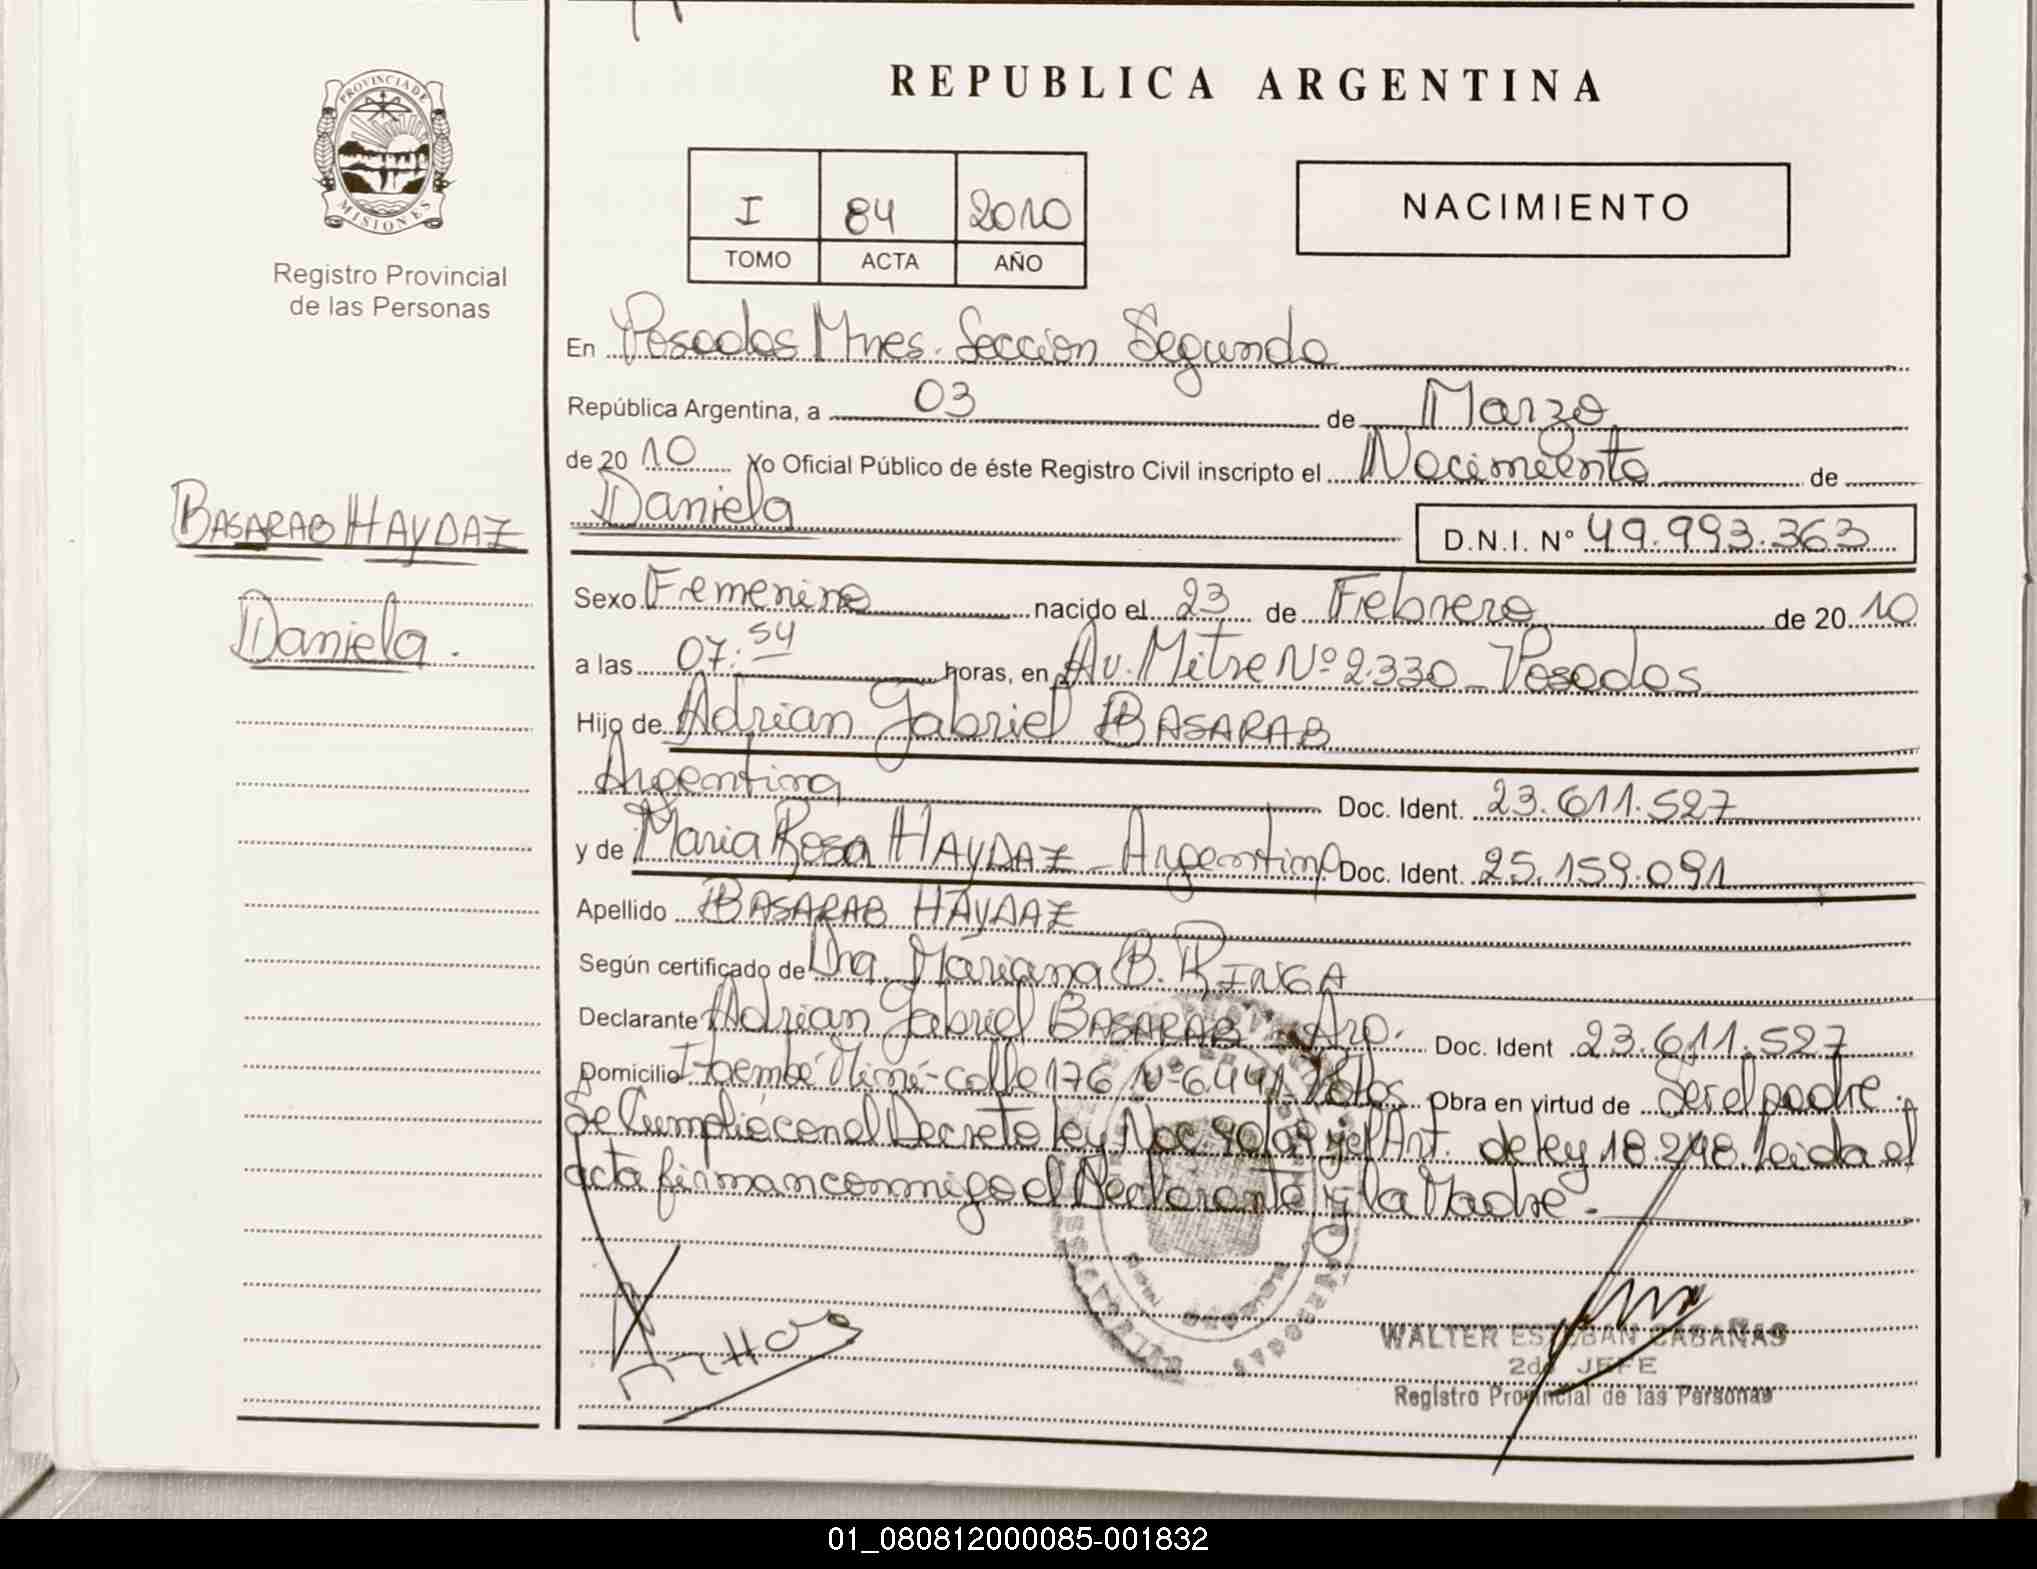 PROVINCIA DE
MISIONES
Registro Provincial
de las Personas
BASARAB HAYDAZ
Daniela.
REPUBLICA ARGENTINA
I 84 2010
TOMO ACTA AÑO
NACIMIENTO
En Posadas Mnes. Seccion Segunda
República Argentina, a 03 de Marzo
de 20 10 Yo Oficial Público de éste Registro Civil inscripto el Nacimiento de
Daniela D.N.I. N° 49.993.363
Sexo Femenino nacido el 23 de Febrero de 20 10
a las 07:54 horas, en Av. Mitre Nº 2.330 - Posadas
Hijo de Adrian Gabriel BASARAB
Argentina Doc. Ident. 23.611.527
y de Maria Rosa HAYDAZ - Argentina Doc. Ident. 25.159.091
Apellido BASARAB HAYDAZ
Según certificado de Dra. Mariana B. RINGA
Declarante Adrian Gabriel BASARAB - Arg. Doc. Ident 23.611.527
Domicilio Itaembé Miní - calle 176 Nº 6.441 - Pdas Obra en virtud de Ser el padre.
Se Cumplió con el Decreto ley Nac. y el Art. de ley 18.248. leida el
acta firman conmigo el Declarante y la Madre.-
WALTER ESTEBAN CABAÑAS
2do JEFE
Registro Provincial de las Personas
01_080812000085-001832